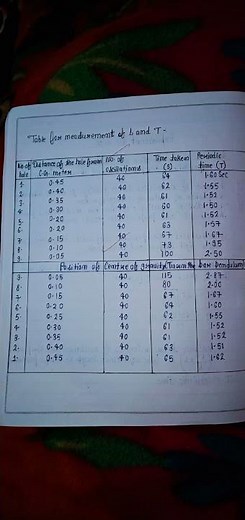 Table for measurement of L and T -
No. of hole | Distance of the hole from C.G. meter | No. of oscillations | Time taken (S) | Periodic time (T)
1. 0.45 40 64 1.60 Sec
2. 0.40 40 62 1.55
3. 0.35 40 61 1.52
4. 0.30 40 60 1.50
5. 0.20 40 61 1.52
6. 0.20 40 63 1.57
7. 0.15 40 67 1.67
8. 0.10 40 73 1.35
9. 0.05 40 100 2.50
Position of Centre of gravity, Turn the bar Pendulum
9. 0.05 40 115 2.87
8. 0.10 40 80 2.00
7. 0.15 40 67 1.67
6. 0.20 40 64 1.60
5. 0.25 40 62 1.55
4. 0.30 40 61 1.52
3. 0.35 40 61 1.52
2. 0.40 40 63 1.51
1. 0.45 40 65 1.62